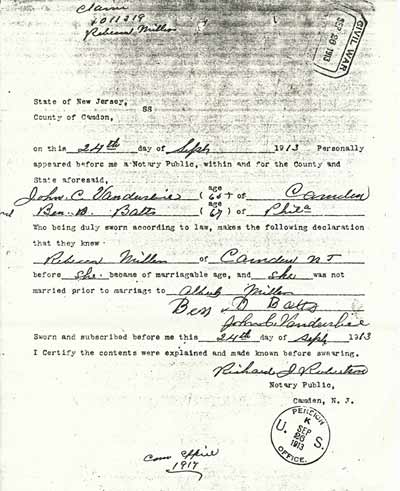 Claim
1011219
Rebecca Millon
SEP 26 1913
CIVIL WAR
State of New Jersey,
SS
County of Camden,
on this 24th day of Sept 1913 Personally
appeared before me a Notary Public, within and for the County and
State aforesaid,
John C. Vandershie (age 60+ of Camden
Ben. D. Batts (age 67) of Phila
Who being duly sworn according to law, makes the following declaration
that they knew
Rebecca Millon of Camden N J
before she became of marriagable age, and she was not
married prior to marriage to Albert Millon
Ben D Batts
John C Vandershie
Sworn and subscribed before me this 24th day of Sept 1913
I Certify the contents were explained and made known before swearing.
Richard J. Robertson
Notary Public,
Camden, N. J.
PENSION
K
SEP
U. 26 S.
1913
OFFICE.
Com Expire
1917